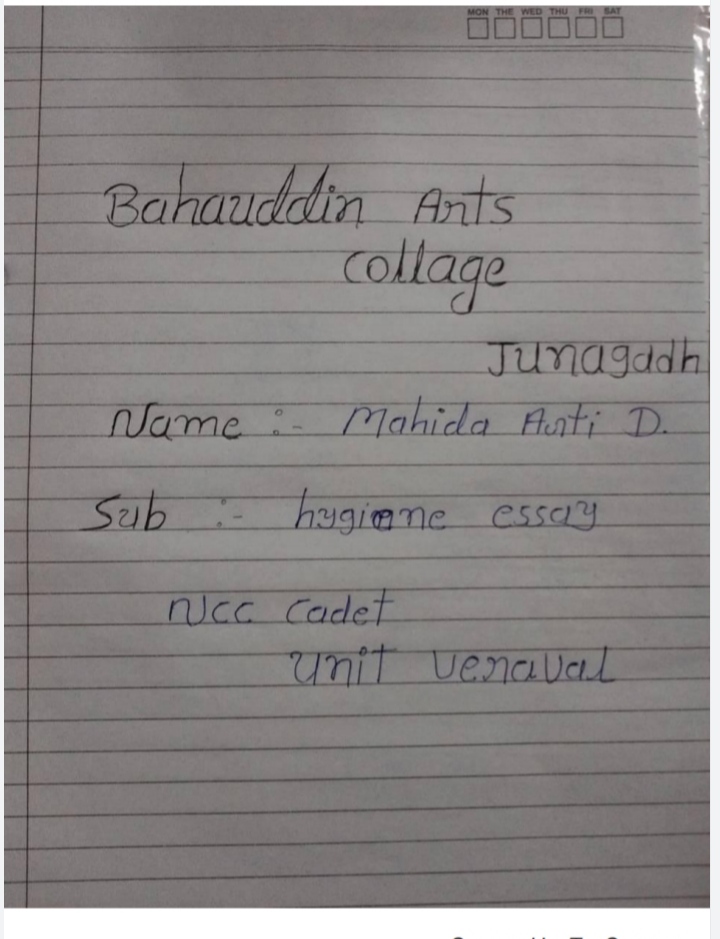 MON THE WED THU FRI SAT
Bahauddin Arts
collage
Junagadh
Name :- Mahida Arti D.
Sub :- hygiene essay
NCC Cadet
Unit Veraval